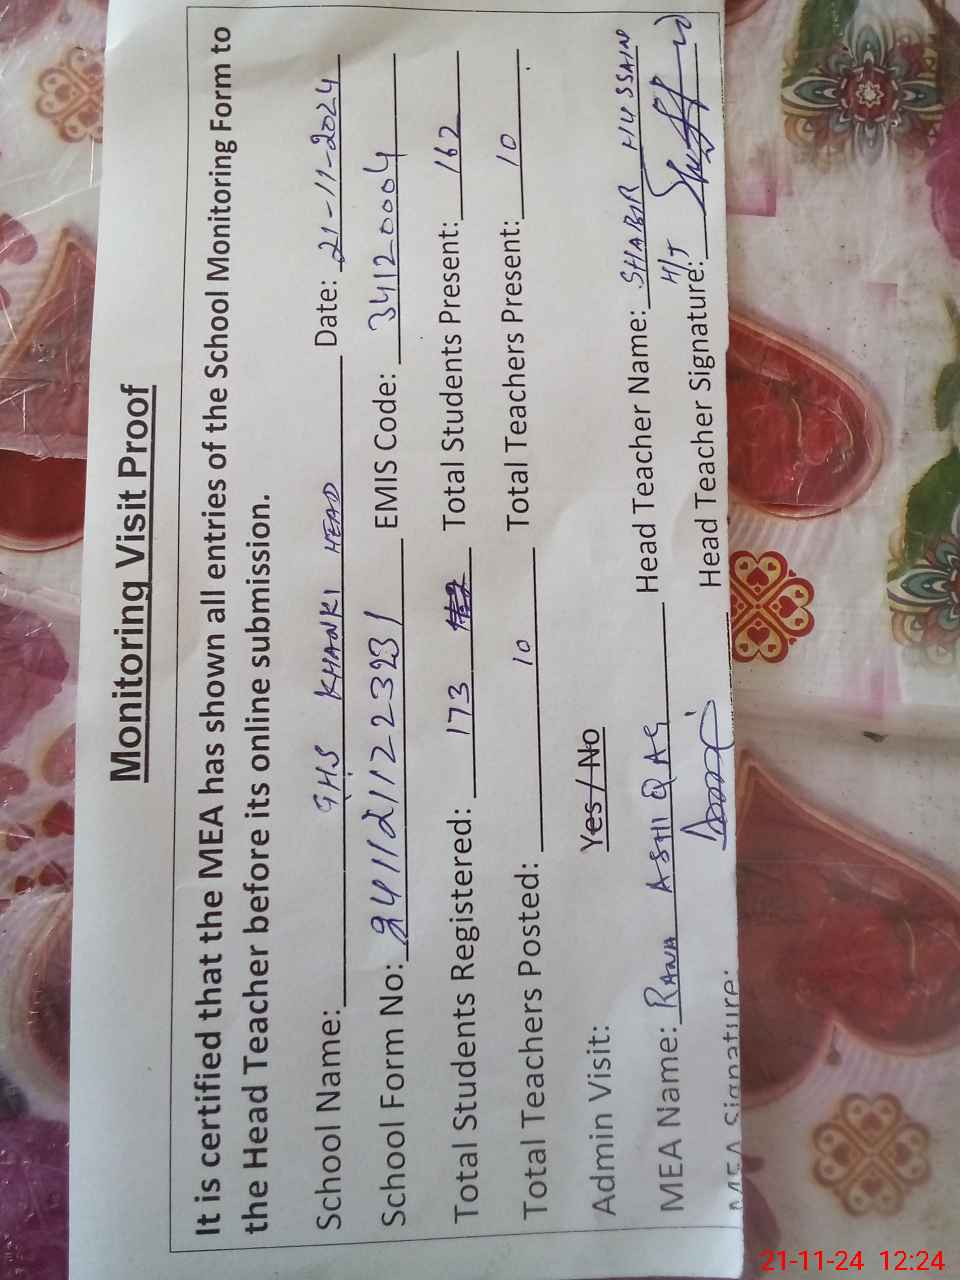 Monitoring Visit Proof
It is certified that the MEA has shown all entries of the School Monitoring Form to
the Head Teacher before its online submission.
School Name: GHS KHANKI HEAD Date: 21-11-2024
School Form No: 2411121122331 EMIS Code: 34120004
Total Students Registered: 173 Total Students Present: 162
Total Teachers Posted: 10 Total Teachers Present: 10
Admin Visit: Yes / No
MEA Name: RANA ASHIQ Head Teacher Name: SHABIR HUSSAIN
H/T
MEA Signature: Head Teacher Signature:
21-11-24 12:24